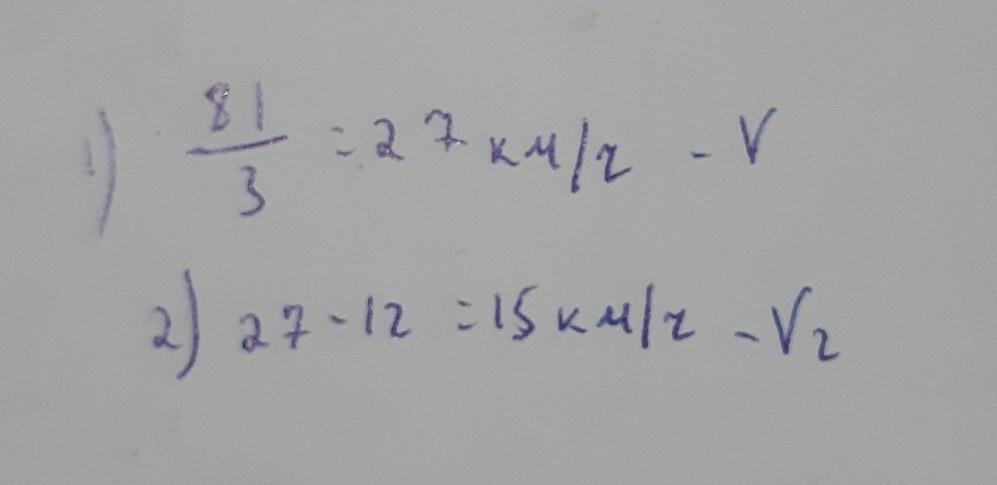 1) 81/3 = 27 км/ч - V
2) 27 - 12 = 15 км/ч - V₂